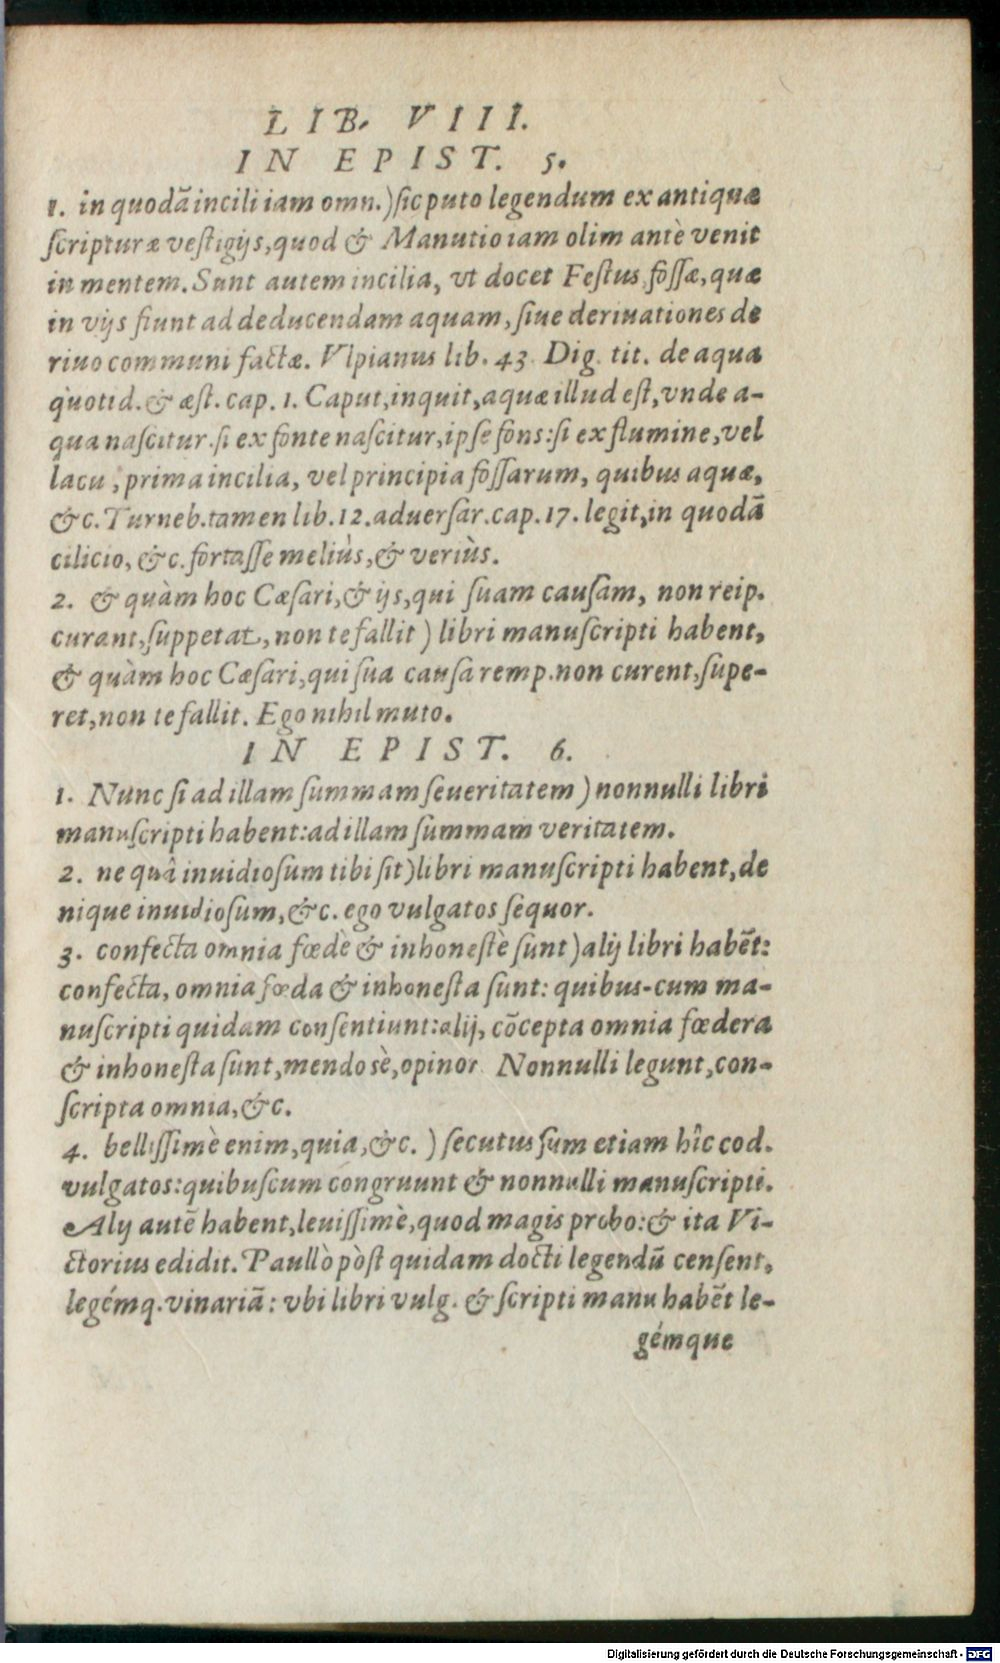 LIB. VIII.
IN EPIST. 5.
1. in quodã incili iam omn.) sic puto legendum ex antiquæ
ſcripturæ veſtigijs, quod & Manutio iam olim antè venit
in mentem. Sunt autem incilia, vt docet Feſtus foſſæ, quæ
in vijs fiunt ad deducendam aquam, ſiue deriuationes de
riuo communi factæ. Vlpianus lib. 43. Dig. tit. de aqua
quotid. & æſt. cap. 1. Caput, inquit, aquæ illud eſt, vnde a-
qua naſcitur. ſi ex fonte naſcitur, ipſe fons: ſi ex flumine, vel
lacu, prima incilia, vel principia foſſarum, quibus aquæ,
&c. Turneb. tamen lib. 12. aduerſar. cap. 17. legit, in quodã
cilicio, &c. fortaſſe meliùs, & veriùs.
2. & quàm hoc Cæſari, & ijs, qui ſuam cauſam, non reip.
curant, ſuppetat, non te fallit) libri manuſcripti habent,
& quàm hoc Cæſari, qui ſua cauſa remp. non curent, ſupe-
ret, non te fallit. Ego nihil muto.
IN EPIST. 6.
1. Nunc ſi ad illam ſummam ſeueritatem) nonnulli libri
manuſcripti habent: ad illam ſummam veritatem.
2. ne quâ inuidioſum tibi ſit) libri manuſcripti habent, de
nique inuidioſum, &c. ego vulgatos ſequor.
3. confecta omnia fœdè & inhoneſtè ſunt) alij libri habẽt:
confecta, omnia fœda & inhoneſta ſunt: quibus-cum ma-
nuſcripti quidam conſentiunt: alij, cõcepta omnia fœdera
& inhoneſta ſunt, mendosè, opinor. Nonnulli legunt, con-
ſcripta omnia, &c.
4. belliſſimè enim, quia, &c.) ſecutus ſum etiam hîc cod.
vulgatos: quibuſcum congruunt & nonnulli manuſcripti.
Alij autẽ habent, leuiſſimè, quod magis probo: & ita Vi-
ctorius edidit. Paullò pòſt quidam docti legendũ cenſent,
legémq. vinariã: vbi libri vulg. & ſcripti manu habẽt le-
gémque
Digitalisierung gefördert durch die Deutsche Forschungsgemeinschaft - DFG